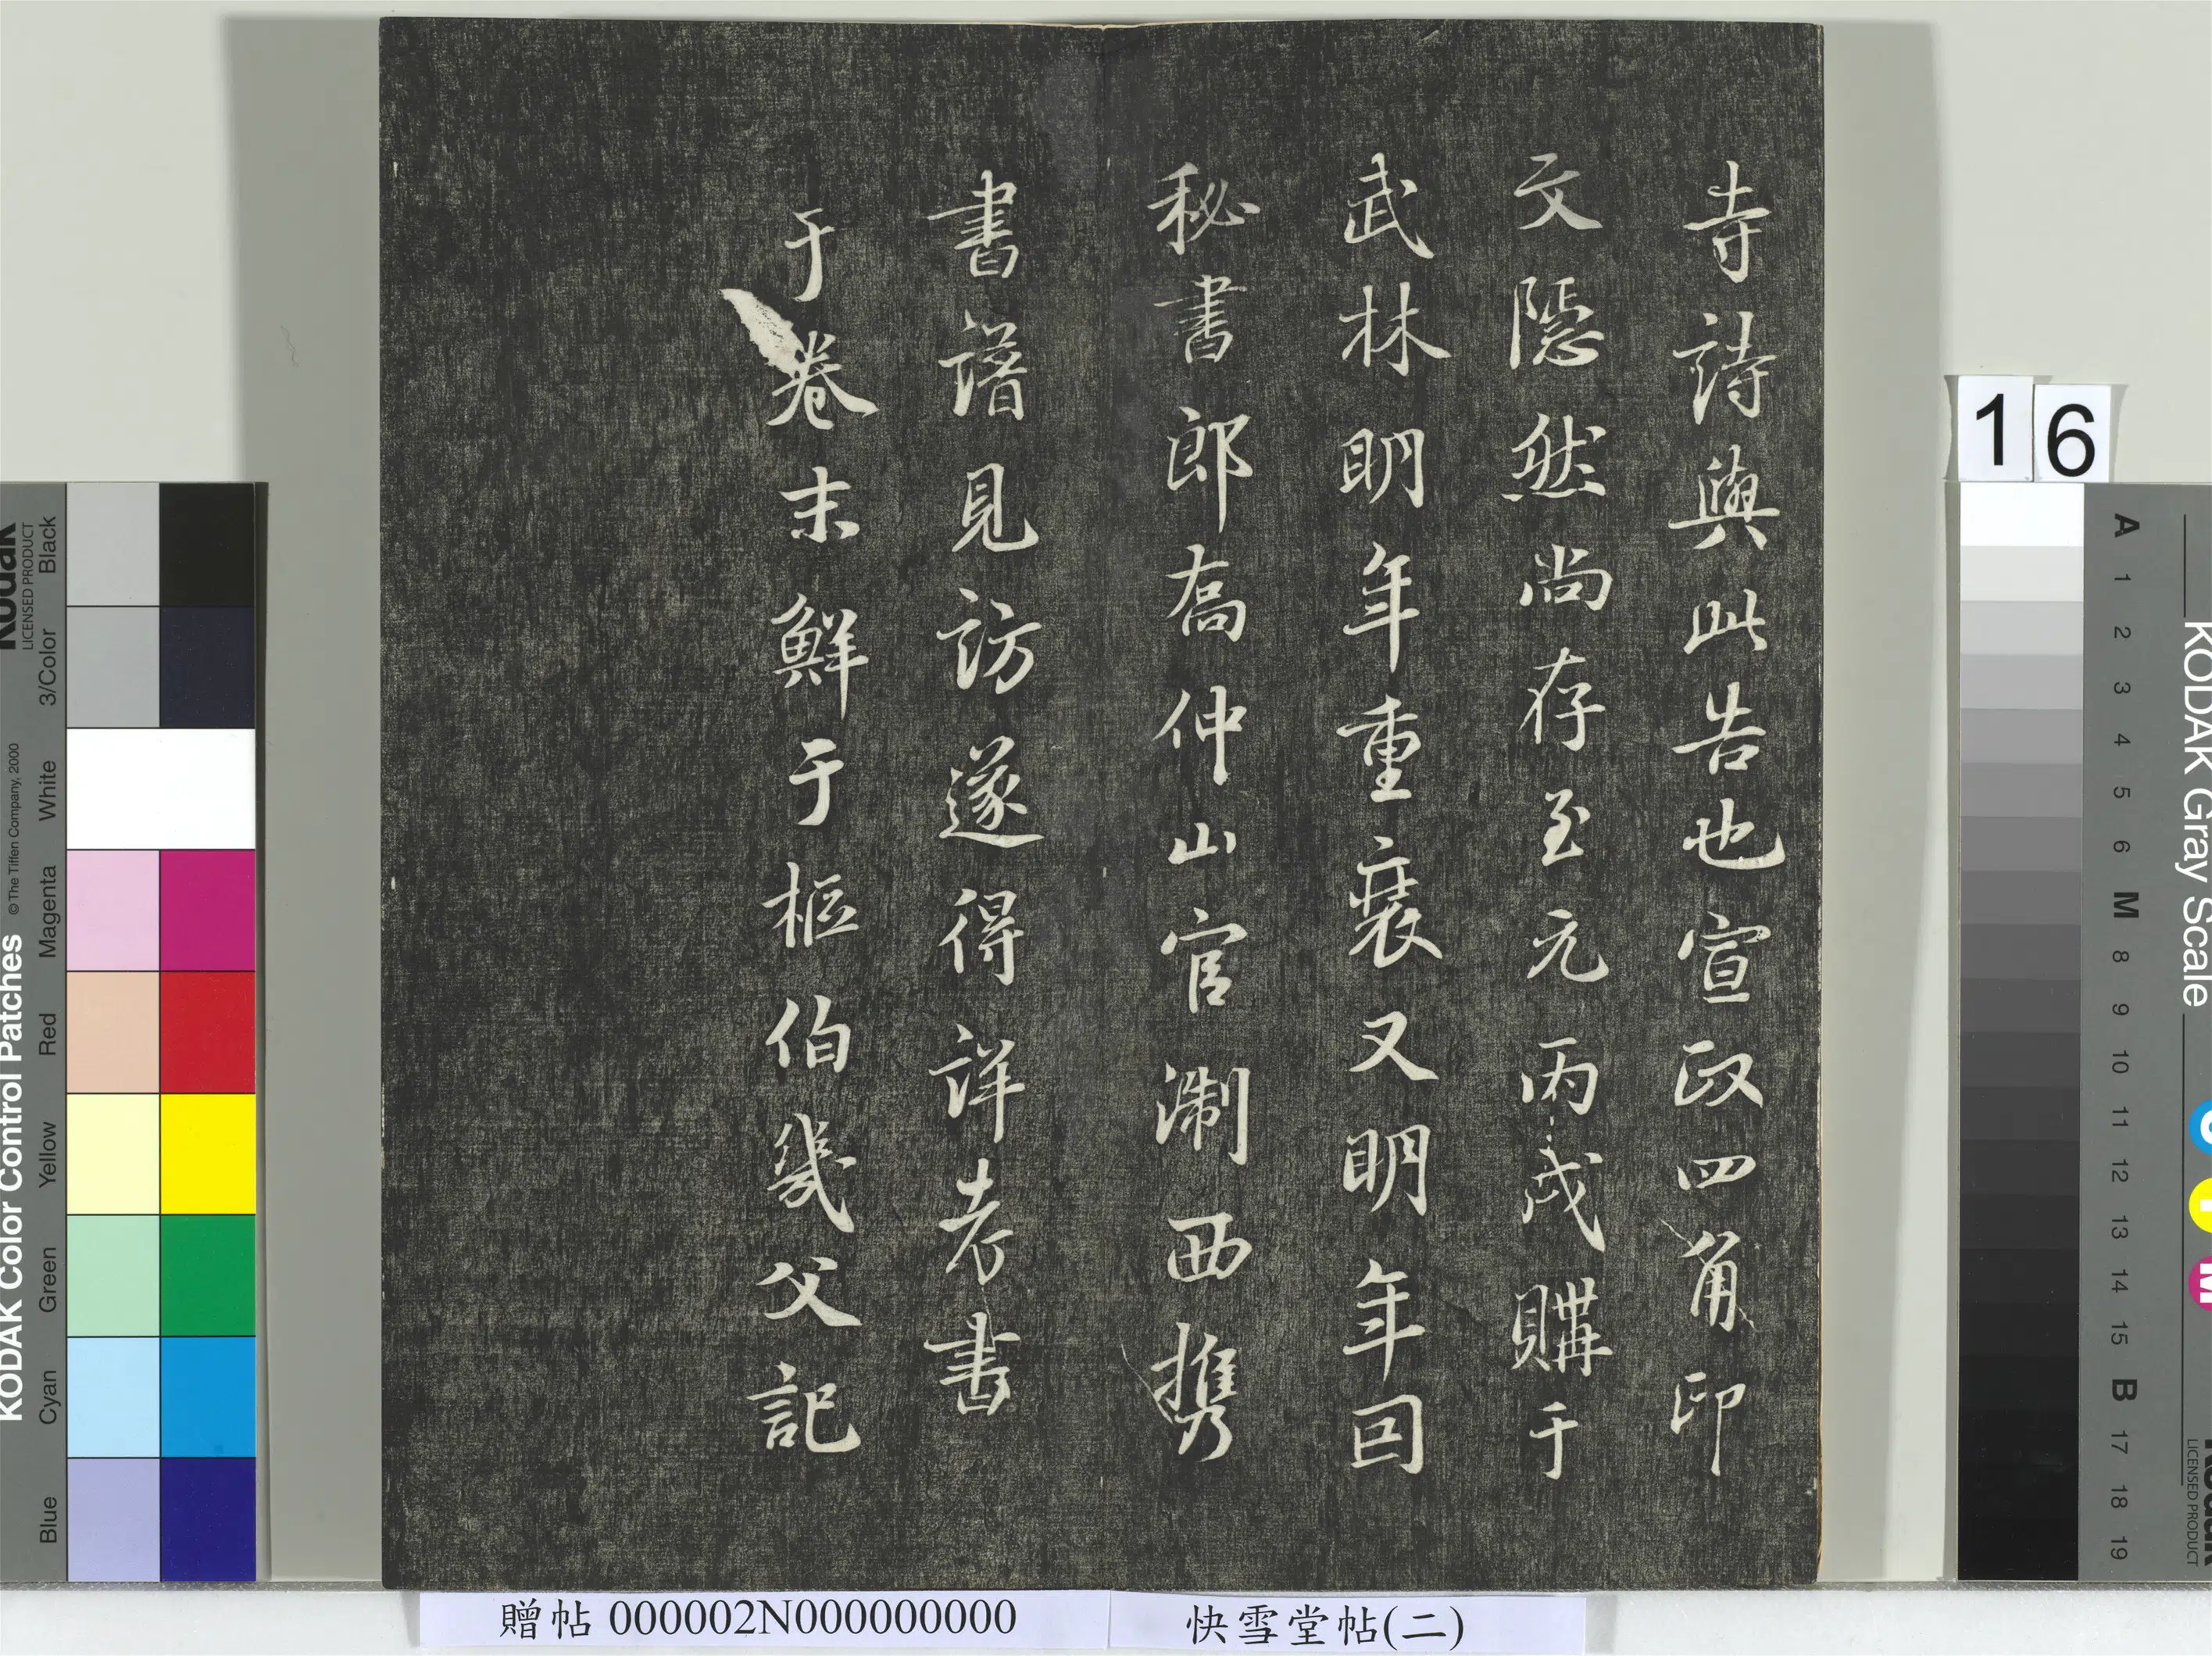 寺詩與此告也宣政四角印
文隱然尚存至元丙戌購于
武林明年重裝又明年回
秘書郎喬仲山官淛西攜
書譜見訪遂得詳考書
于卷末鮮于樞伯幾父記
16
贈帖 000002N000000000
快雪堂帖(二)
KODAK Color Control Patches
© The Tiffen Company, 2000
Kodak
LICENSED PRODUCT
Blue
Cyan
Green
Yellow
Red
Magenta
White
3/Color
Black
KODAK Gray Scale
A 1 2 3 4 5 6 M 8 9 10 11 12 13 14 15 B 17 18 19
C
Y
M
Kodak
LICENSED PRODUCT